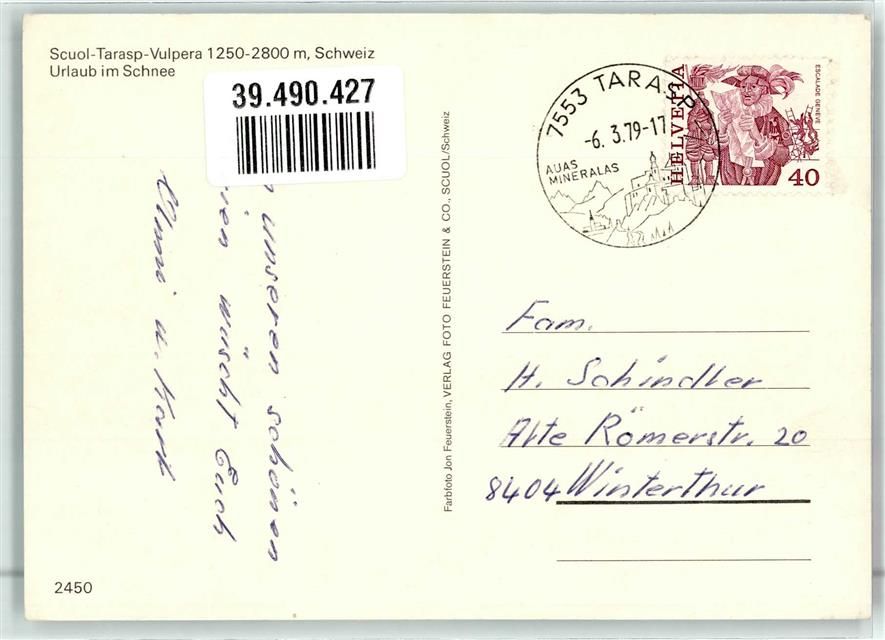 Scuol-Tarasp-Vulpera 1250-2800 m, Schweiz
Urlaub im Schnee
39.490.427
unseren schönen
wüscht Euch
u. Kurt
2450
Farbfoto Jon Feuerstein, VERLAG FOTO FEUERSTEIN & CO., SCUOL/Schweiz
7553 TARASP
-6. 3.79-17
AUAS
MINERALAS
HELVETIA
ESCALADE GENÈVE
40
Fam.
H. Schindler
Alte Römerstr. 20
8404 Winterthur